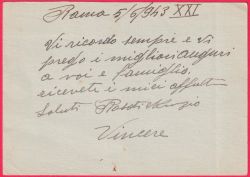 Roma 5/6/943 XXI
Vi ricordo sempre e vi
prego i migliori auguri
a voi e famiglia
ricevete i miei affett
Saluti
Vincere